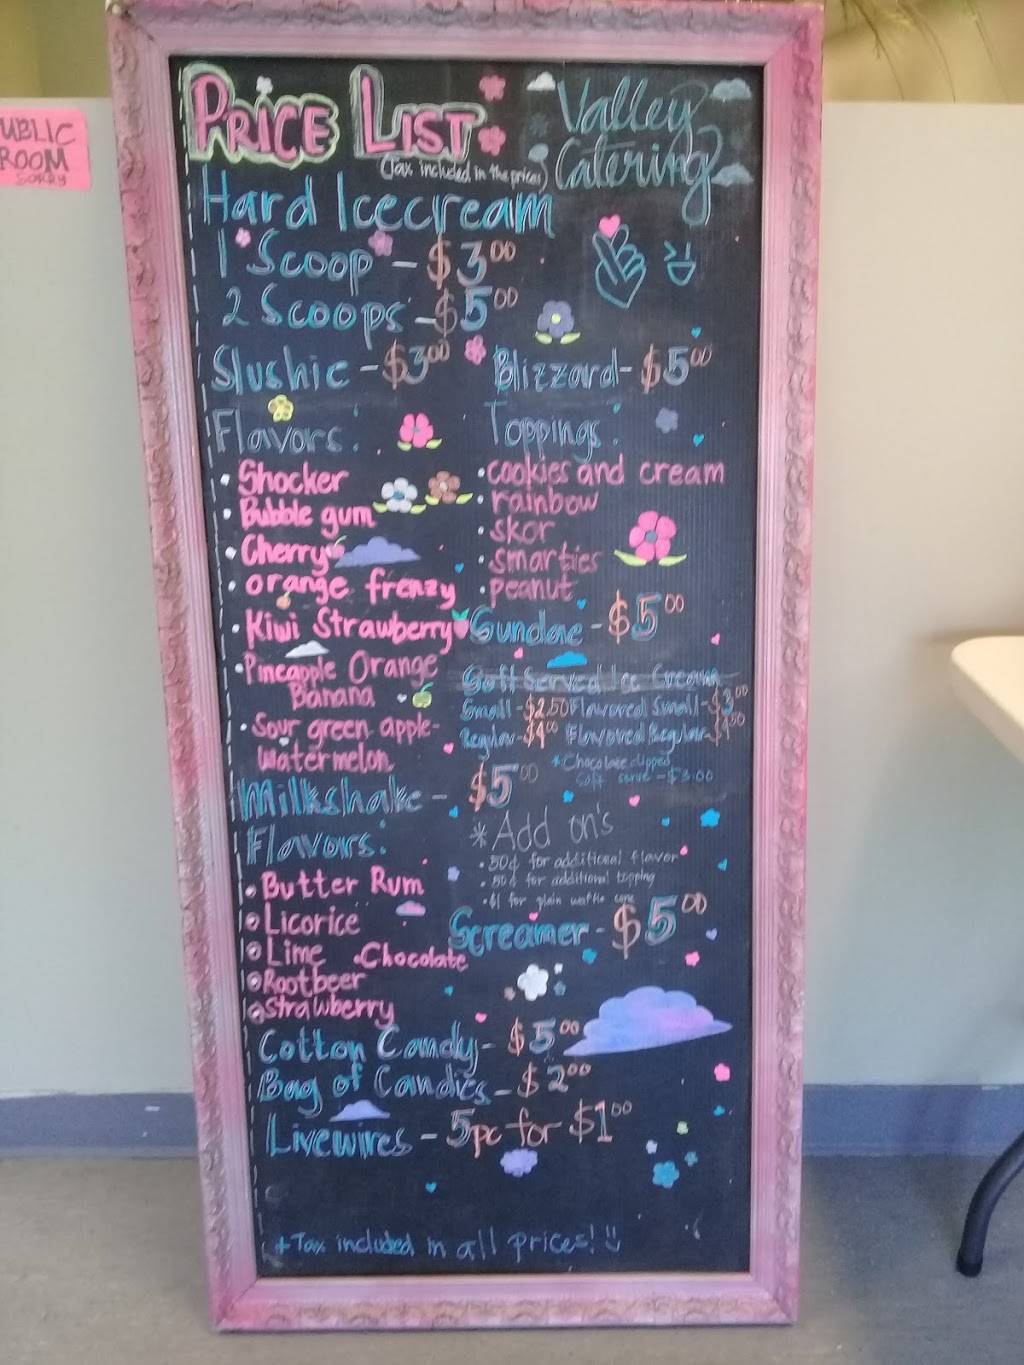 UBLIC
ROOM
SORRY
PRICE LIST
(Tax included in the prices)
Valley
Catering
Hard Icecream
1 Scoop - $3.00
2 Scoops - $5.00
Slushie - $3.00
Blizzard - $5.00
Flavors:
• Shocker
• Bubble gum
• Cherry
• orange frenzy
• Kiwi Strawberry
• Pineapple Orange
Banana
• Sour green apple-
watermelon
Toppings:
• cookies and cream
• rainbow
• skor
• smarties
• peanut
Sundae - $5.00
Soft Served Ice Cream
Small - $2.50 Flavored Small - $3.00
Regular - $4.00 Flavored Regular - $4.50
* Chocolate dipped
soft serve - $3.00
Milkshake - $5.00
Flavors:
• Butter Rum
• Licorice
• Lime • Chocolate
• Rootbeer
• Strawberry
* Add on's
• 50¢ for additional flavor
• 50¢ for additional topping
• $1 for plain waffle cone
Screamer - $5.00
Cotton Candy - $5.00
Bag of Candies - $2.00
Livewires - 5pc for $1.00
+ Tax included in all prices!